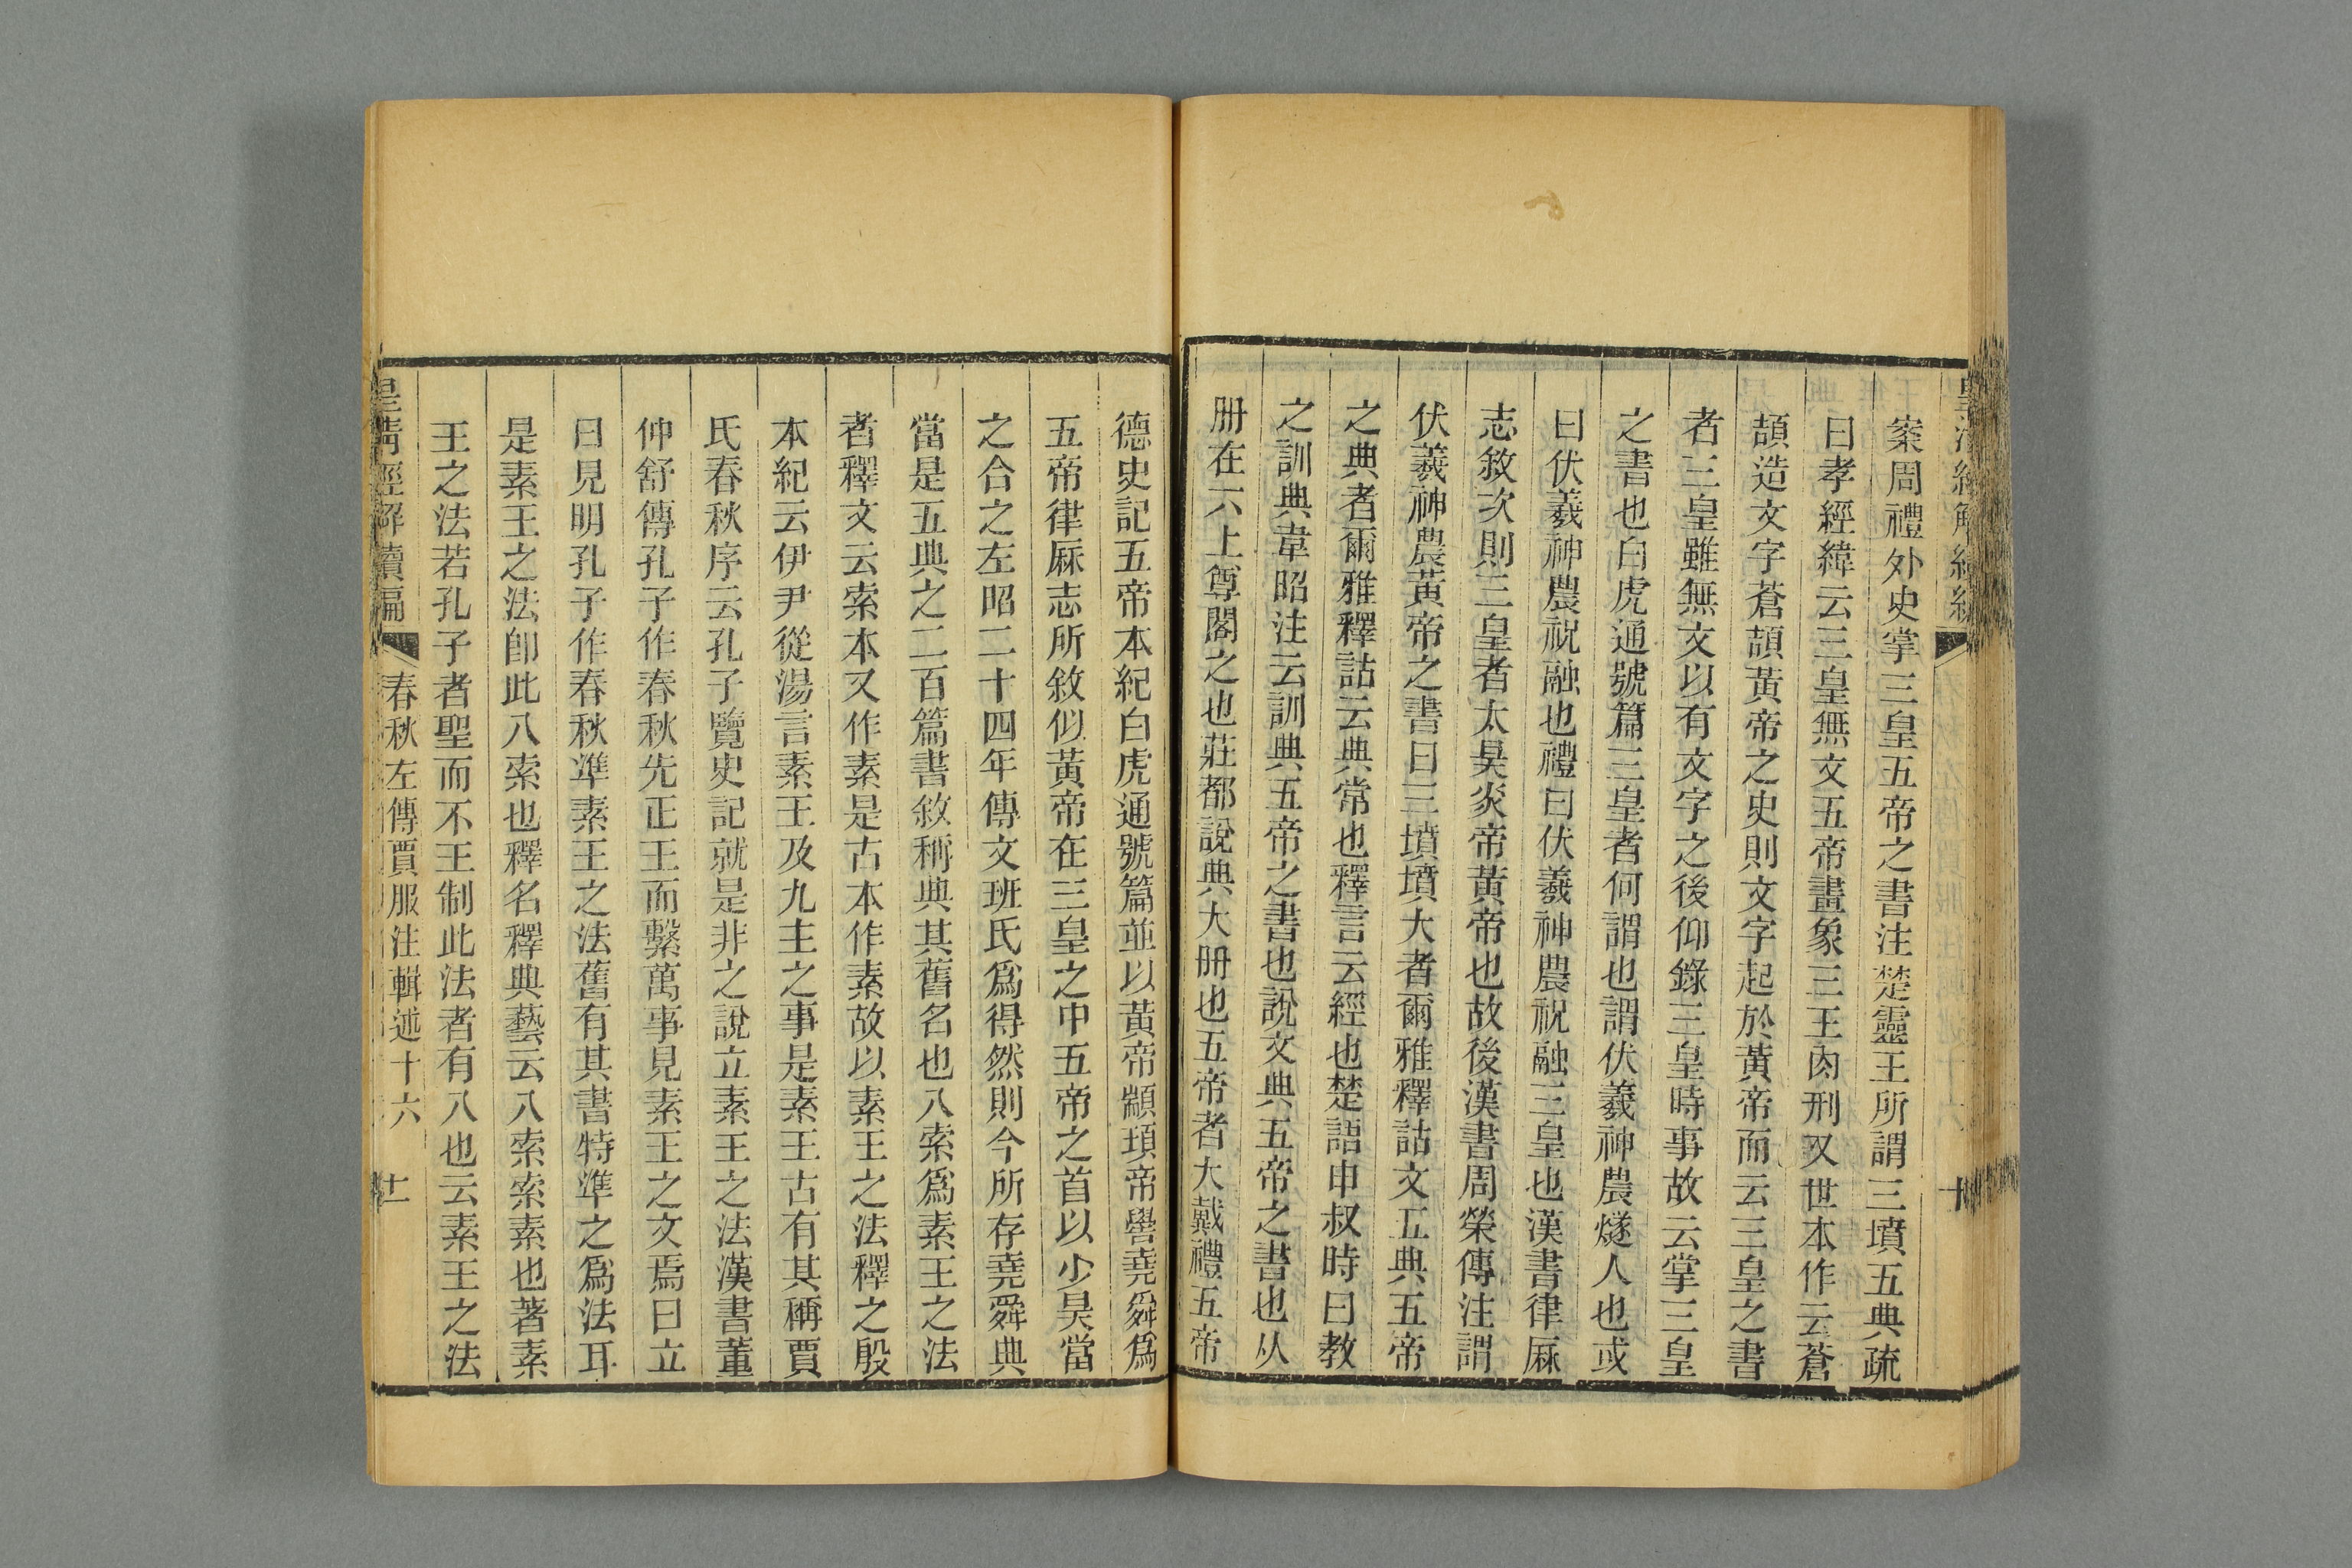 案周禮外史掌三皇五帝之書注楚靈王所謂三墳五典疏
曰孝經緯云三皇無文五帝畫象三王肉刑又世本作云蒼
頡造文字蒼頡黃帝之史則文字起於黃帝而云三皇之書
者三皇雖無文以有文字之後仰錄三皇時事故云掌三皇
之書也白虎通號篇三皇者何謂也謂伏羲神農燧人也或
曰伏羲神農祝融也禮曰伏羲神農祝融三皇也漢書律厤
志敘次則三皇者太昊炎帝黃帝也故後漢書周榮傳注謂
伏羲神農黃帝之書曰三墳墳大者爾雅釋詁文五典五帝
之典者爾雅釋詁云典常也釋言云經也楚語申叔時曰教
之訓典韋昭注云訓典五帝之書也說文典五帝之書也从
冊在六上尊閣之也莊都說典大冊也五帝者大戴禮五帝
德史記五帝本紀白虎通號篇並以黃帝顓頊帝嚳堯舜爲
五帝律厤志所敘似黃帝在三皇之中五帝之首以少昊當
之合之左昭二十四年傳文班氏爲得然則今所存堯舜典
當是五典之二百篇書敘稱典其舊名也八索爲素王之法
者釋文云索本又作素是古本作素故以素王之法釋之殷
本紀云伊尹從湯言素王及九主之事是素王古有其稱賈
氏春秋序云孔子覽史記就是非之說立素王之法漢書董
仲舒傳孔子作春秋先正王而繫萬事見素王之文焉曰立
曰見明孔子作春秋準素王之法舊有其書特準之爲法耳
是素王之法卽此八索也釋名釋典藝云八索索素也著素
王之法若孔子者聖而不王制此法者有八也云素王之法
皇淸經解續編 春秋左傳賈服注輯述十六 十一